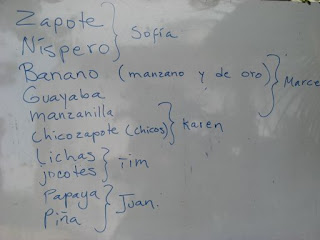 Zapote
Níspero } Sofía
Banano (manzano y de oro) } Marce
Guayaba
manzanilla
chicozapote (chicos) } Karen
Lichas
jocotes } Tim
Papaya
Piña } Juan.